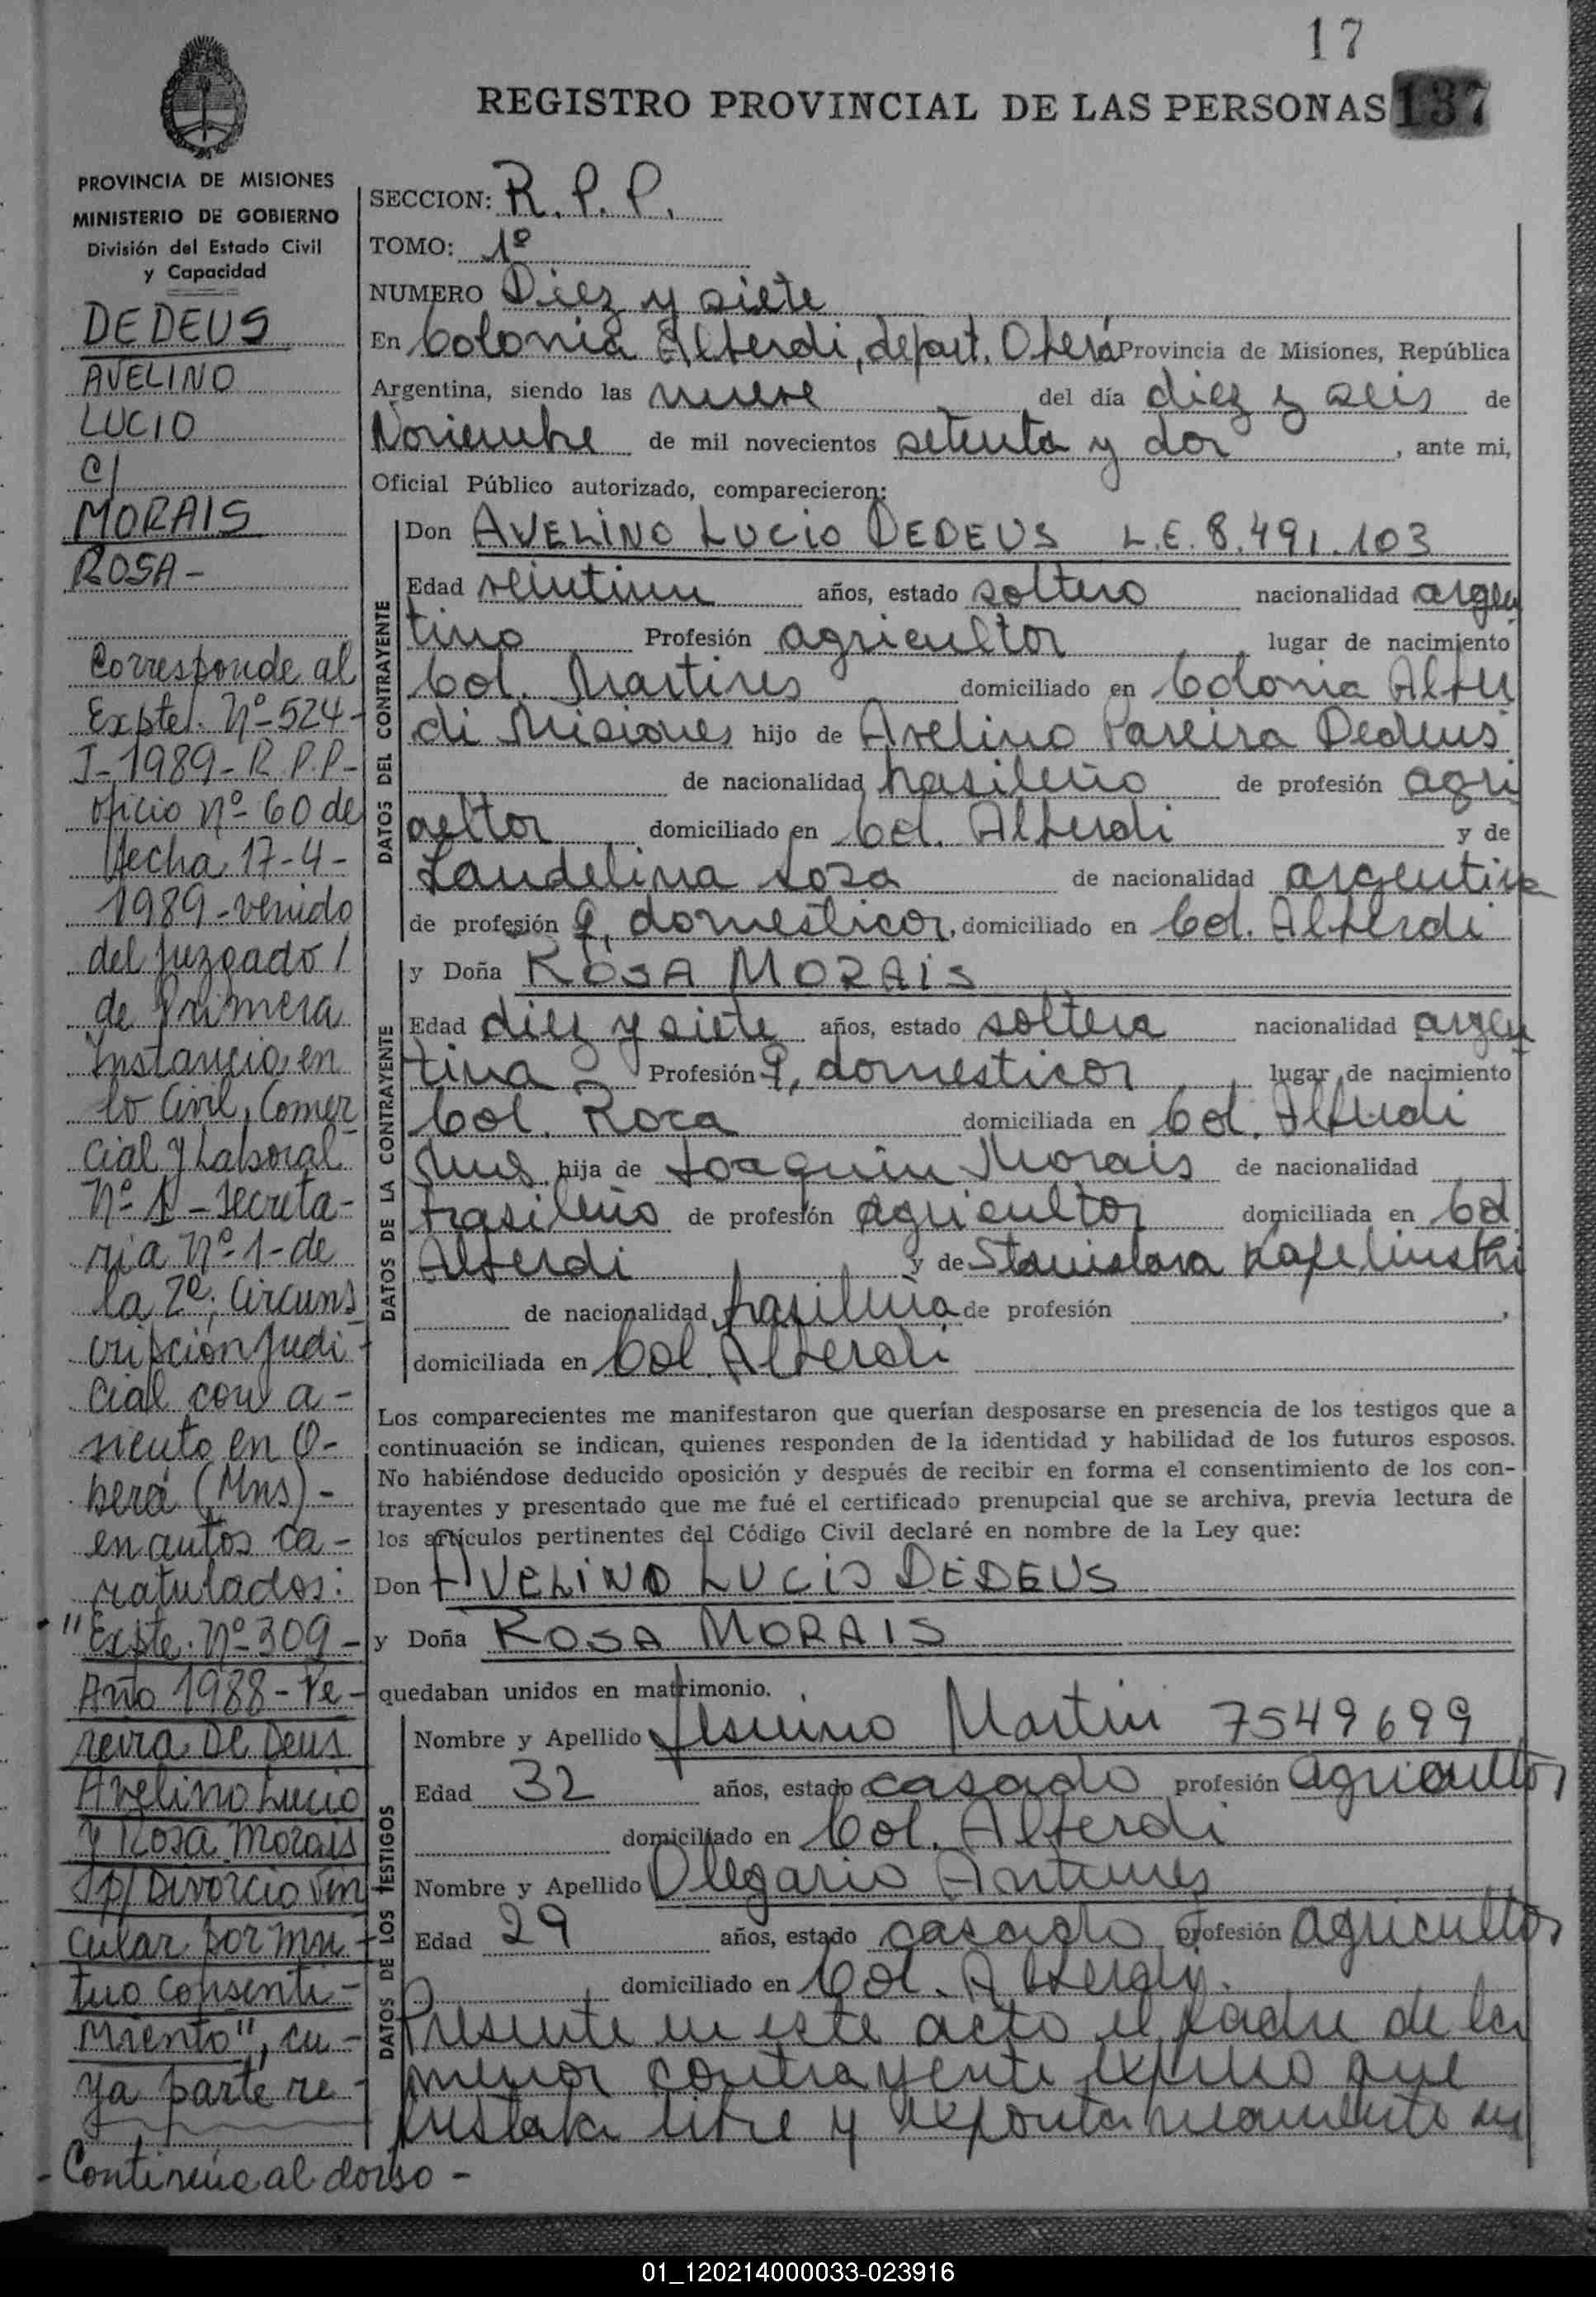 17
REGISTRO PROVINCIAL DE LAS PERSONAS 137
PROVINCIA DE MISIONES
MINISTERIO DE GOBIERNO
División del Estado Civil
y Capacidad
DEDEUS
AVELINO
LUCIO
c/
MORAIS
ROSA-
Corresponde al
Expte. Nº-524-
I-1989-R.P.P-
oficio nº-60 de
fecha 17-4-
1989-venido
del Juzgado /
de Primera
Instancia en
lo Civil, Comer
cial y Laboral
Nº-1-Secreta-
ria Nº-1-de
la 2ª; Circuns
cripción Judi-
cial con a-
siento en O-
berá (Mns)-
en autos ca-
ratulados:
"Expte. Nº-309-
Año 1988-Pe-
reira De Deus
Avelino Lucio
y Rosa Morais
S/p/ Divorcio Vin
cular por mu-
tuo consenti-
miento", cu-
ya parte re-
-Continúa al dorso-
SECCION: R.P.P.
TOMO: 1º
NUMERO Diez y siete
En Colonia Alberdi, depart. Oberá Provincia de Misiones, República
Argentina, siendo las nueve del día diez y seis de
Noviembre de mil novecientos setenta y dos, ante mi,
Oficial Público autorizado, comparecieron:
DATOS DEL CONTRAYENTE
Don AVELINO LUCIO DEDEUS L.E. 8.491.103
Edad veintiun años, estado soltero nacionalidad argen
tino Profesión agricultor lugar de nacimiento
Col. Martires domiciliado en Colonia Alber
di Misiones hijo de Avelino Pareira Dedeus
de nacionalidad brasileño de profesión agri
cultor domiciliado en Col. Alberdi y de
Laudelina Sosa de nacionalidad argentina
de profesión q. domesticos, domiciliado en Col. Alberdi
DATOS DE LA CONTRAYENTE
y Doña ROSA MORAIS
Edad diez y siete años, estado soltera nacionalidad argen
tina Profesión q. domesticos lugar de nacimiento
Col. Roca domiciliada en Col. Alberdi
Mnes hija de Joaquin Morais de nacionalidad
brasileño de profesión agricultor domiciliada en Col
Alberdi y de Stanislava
de nacionalidad brasileña de profesión
domiciliada en Col Alberdi
Los comparecientes me manifestaron que querían desposarse en presencia de los testigos que a
continuación se indican, quienes responden de la identidad y habilidad de los futuros esposos.
No habiéndose deducido oposición y después de recibir en forma el consentimiento de los con-
trayentes y presentado que me fué el certificado prenupcial que se archiva, previa lectura de
los artículos pertinentes del Código Civil declaré en nombre de la Ley que:
Don AVELINO LUCIO DEDEUS
y Doña ROSA MORAIS
quedaban unidos en matrimonio.
DATOS DE LOS TESTIGOS
Nombre y Apellido Jesuino Martin 7549699
Edad 32 años, estado casado profesión agricultor
domiciliado en Col. Alberdi
Nombre y Apellido Olegario Antunes
Edad 29 años, estado casado profesión agricultor
domiciliado en Col. Alberdi.
Presente en este acto el padre de la
menor contrayente expuso que
prestaba libre y expontaneamente su
01_120214000033-023916